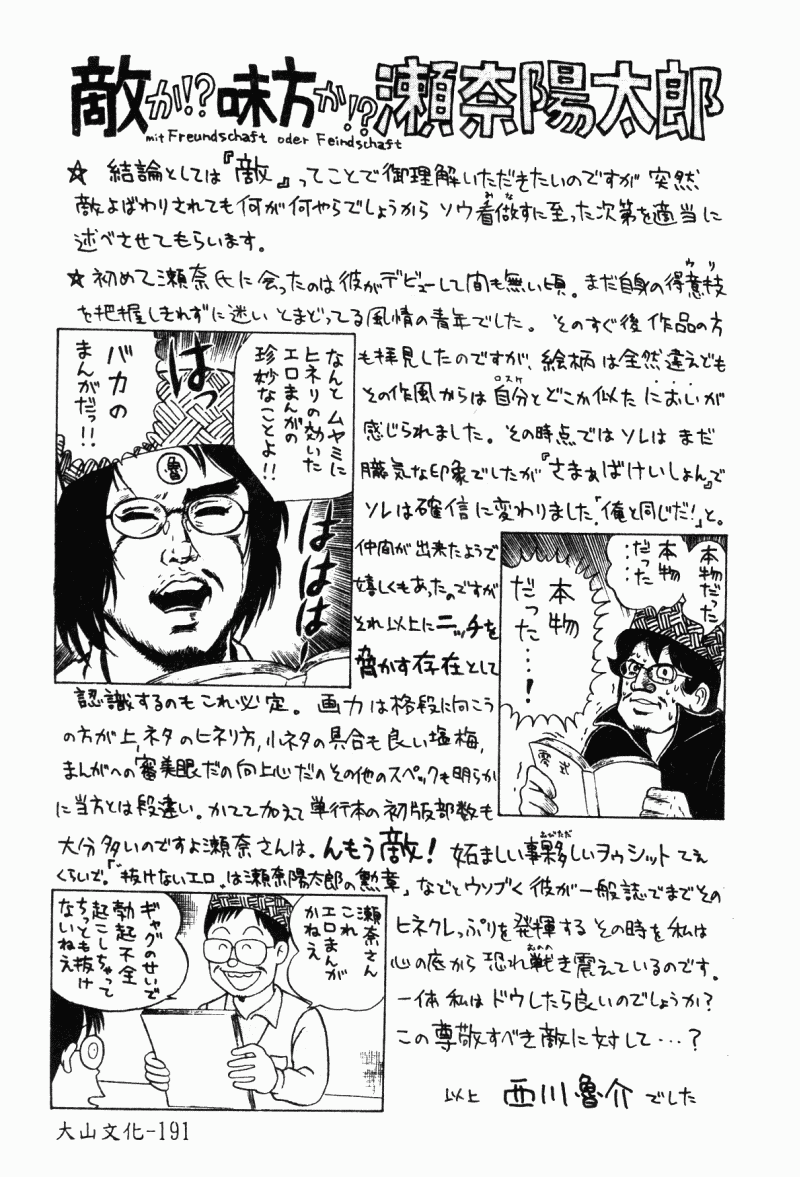 敵か!?味方か!?瀬奈陽太郎
mit Freundschaft oder Feindschaft
☆ 結論としては『敵』ってことで御理解いただきたいのですが 突然
敵よばわりされても何が何やらでしょうから ソウ看做すに至った次第を適当に
みな
述べさせてもらいます。
☆初めて瀬奈氏に会ったのは彼がデビューして間も無い頃。まだ自身の得意技
ウリ
を把握しきれずに迷い とまどってる風情の青年でした。そのすぐ後 作品の方
も拝見したのですが、絵柄は全然違えども
その作風からは自分とどこか似た においが
ロスケ
感じられました。その時点ではソレは まだ
朧気な印象でしたが『さまぁばけいしょん』で
ソレは確信に変わりました「俺と同じだ!」と。
なんと ムヤミに
ヒネリの効いた
エロまんがの
珍妙なことよ!!
はっ
ははは
バカの
まんがだっ!!
魯
仲間が出来たようで
嬉しくもあったのですが
それ以上にニッチを
脅かす存在として
本物だった
本物
だった
……
本物
だった…!
零式
認識するのもこれ必定。画力は格段に向こう
の方が上、ネタのヒネリ方、小ネタの具合も良い塩梅、
まんがへの審美眼だの向上心だのその他のスペックも明らか
に当方とは段違い。かてて加えて単行本の初版部数も
大分多いのですよ瀬奈さんは。んもう敵! 妬ましい事夥しいヲゥシットてえ
おびただ
くらいで。「〝抜けないエロ〟は瀬奈陽太郎の勲章」などとウソブく彼が一般誌でまでその
ヒネクレっぷりを発揮する その時を私は
心の底から恐れ戦き震えているのです。
おのの
一体 私はドウしたら良いのでしょうか?
この尊敬すべき敵に対して…?
瀬奈さん
これ
エロまんが
かねえ
ギャグのせいで
勃起不全
起こしちゃって
ちっとも抜け
ないねえ
以上 西川魯介でした
大山文化-191